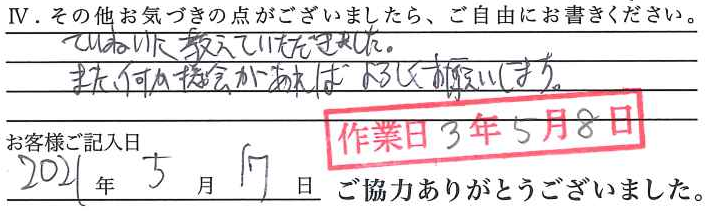 Ⅳ．その他お気づきの点がございましたら、ご自由にお書きください。
ていねいに教えていただきました。
また、何か機会があれば よろしくお願いします。
作業日 3年5月8日
お客様ご記入日
2021年 5月 17日 ご協力ありがとうございました。